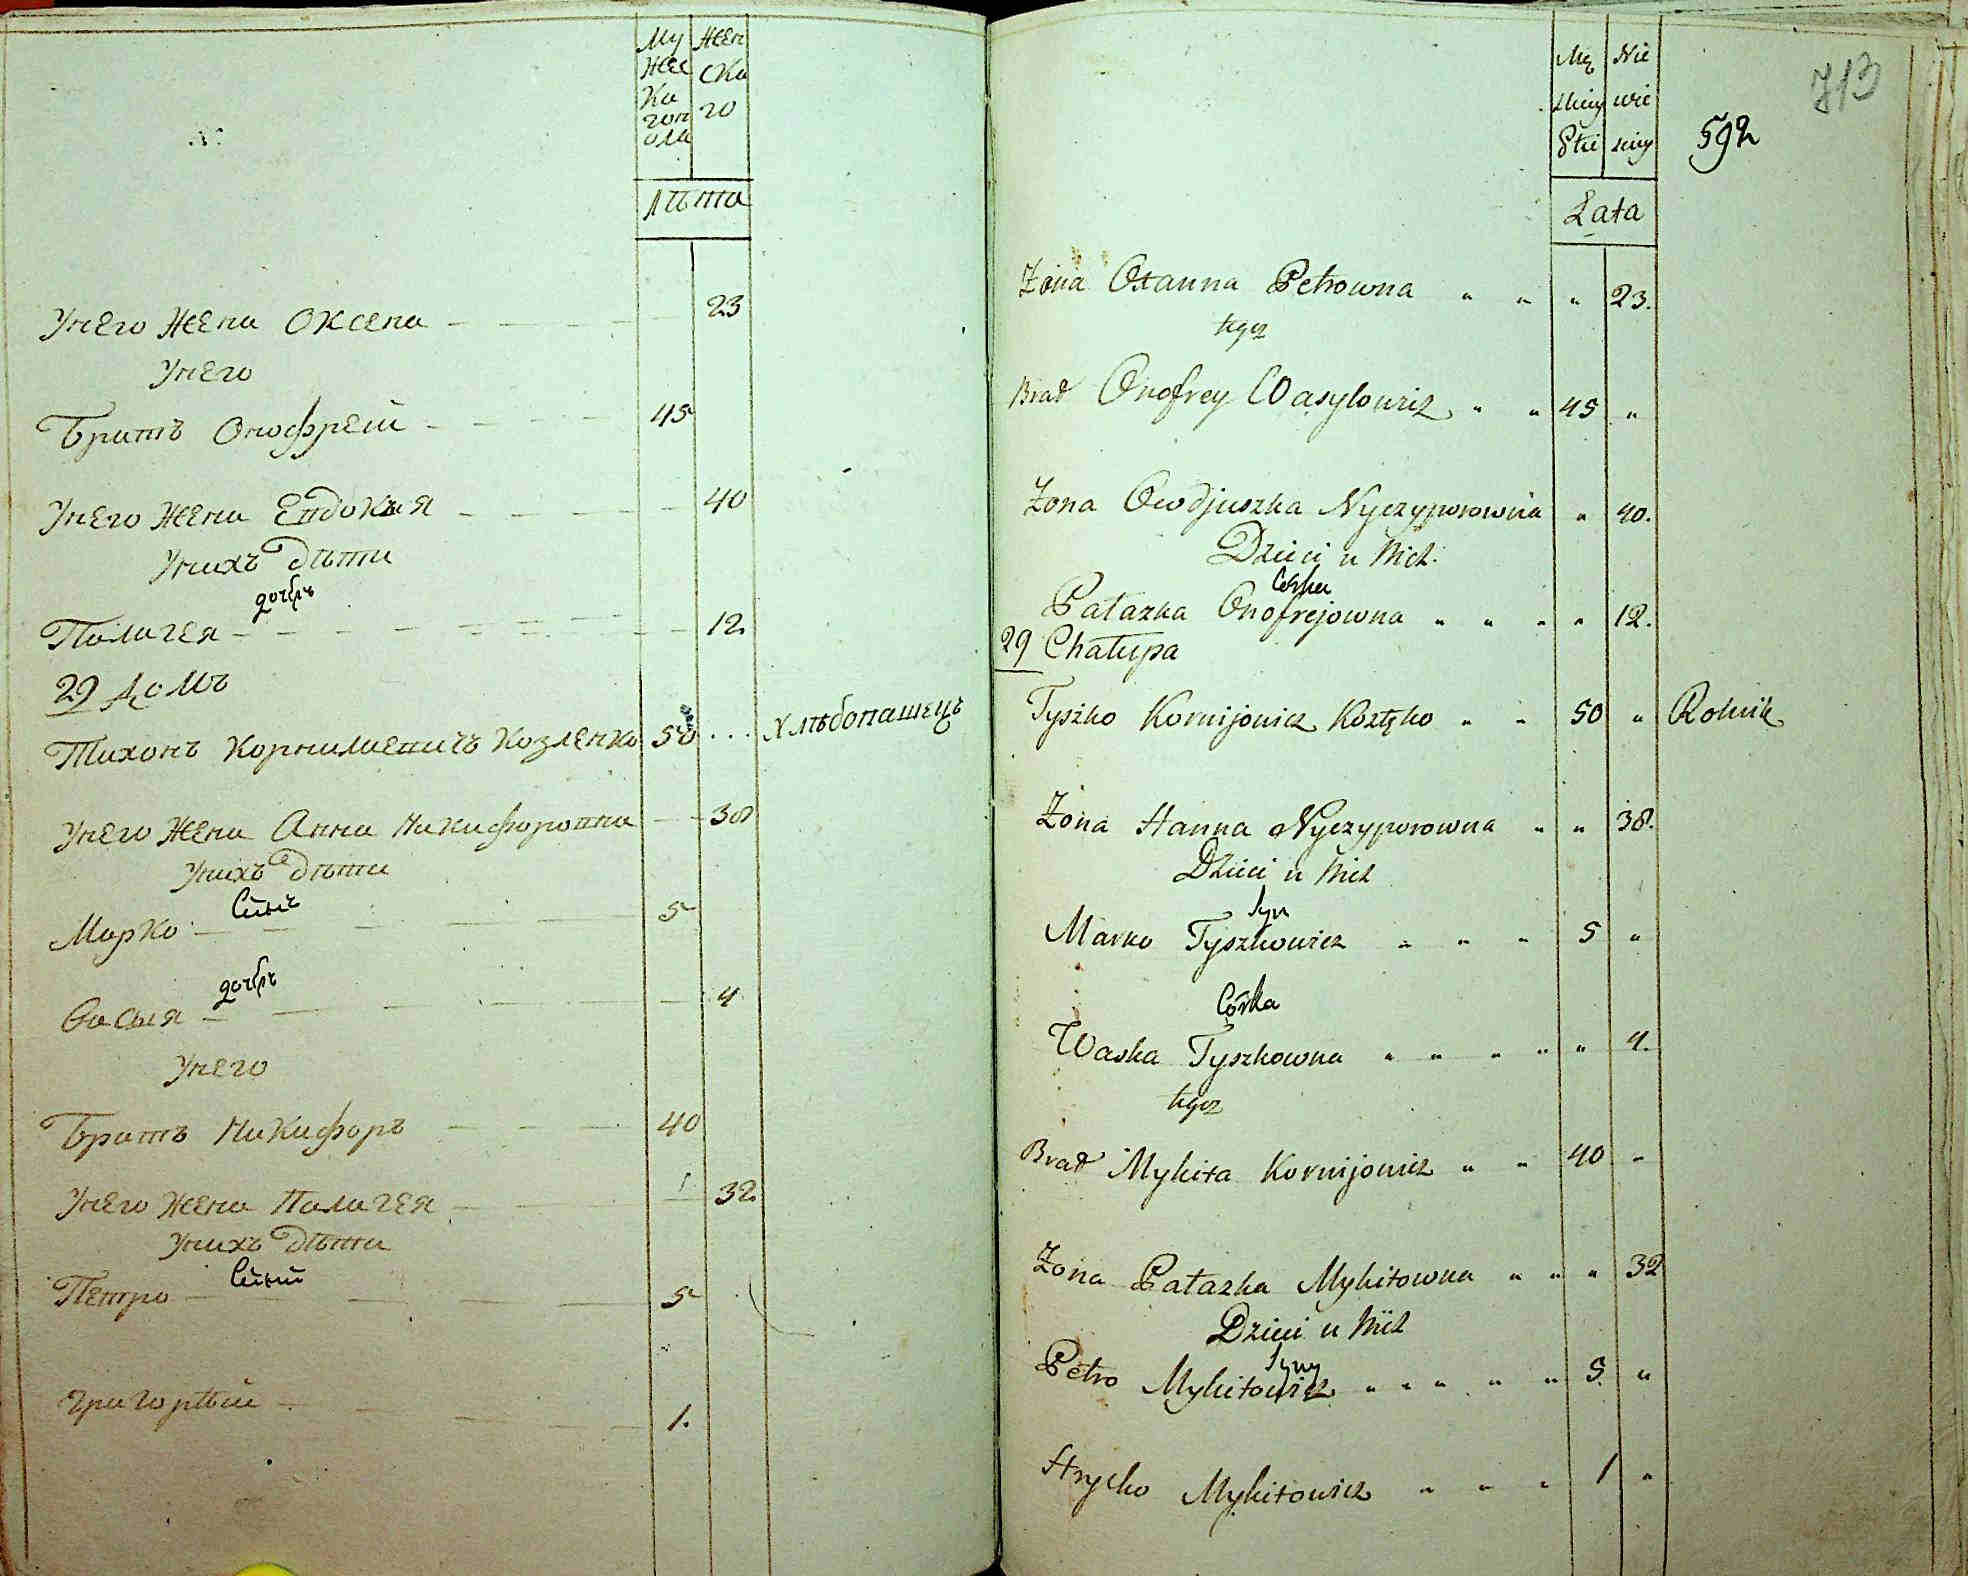 Му Жен
жес ска
ка го
гоп
ола
Лѣта
Унего Жена Оксена 23
Унего
Братъ Онофрей 45
Унего Жена Евдокия 40
Унихъ дѣти
дочерь
Палагея 12
29 домъ
Тихонъ Корнилиевичъ Козленко 50 ... Хлѣбопашецъ
Унего Жена Анна Никифоровна 38
Унихъ дѣти
Сынъ
Марко 5
дочерь
Васья 4
Унего
Братъ Никифоръ 40
Унего Жена Палагея 32
Унихъ дѣти
Сыни
Петро 5
Григорѣй 1.
713
Mę Nie
skiey wie
Płci sciey
592
Lata
Żona Oxanna Petrowna " " " 23.
tegoz
Brat Onofrey Wasylowicz " " 45 "
Żona Owdjuszka Nyczyporowna " 40.
Dzieci u Nich
Córka
Pałazka Onofrejowna " " " " 12.
29 Chałupa
Tyszko Kornijowicz Kozłęko " " 50 " Rolnik
Żona Hanna Nyczyporowna " " 38.
Dzieci u Nich
Syn
Marko Tyszkowicz " " " 5 "
Córka
Waska Tyszkowna " " " " " 4.
tegoz
Brat Mykita Kornijowicz " " 40 "
Żona Pałazka Mykitowna " " " 32
Dzieci u Nich
Syny
Petro Mykitowicz " " " " " 5 "
Hrycko Mykitowicz " " " 1 "